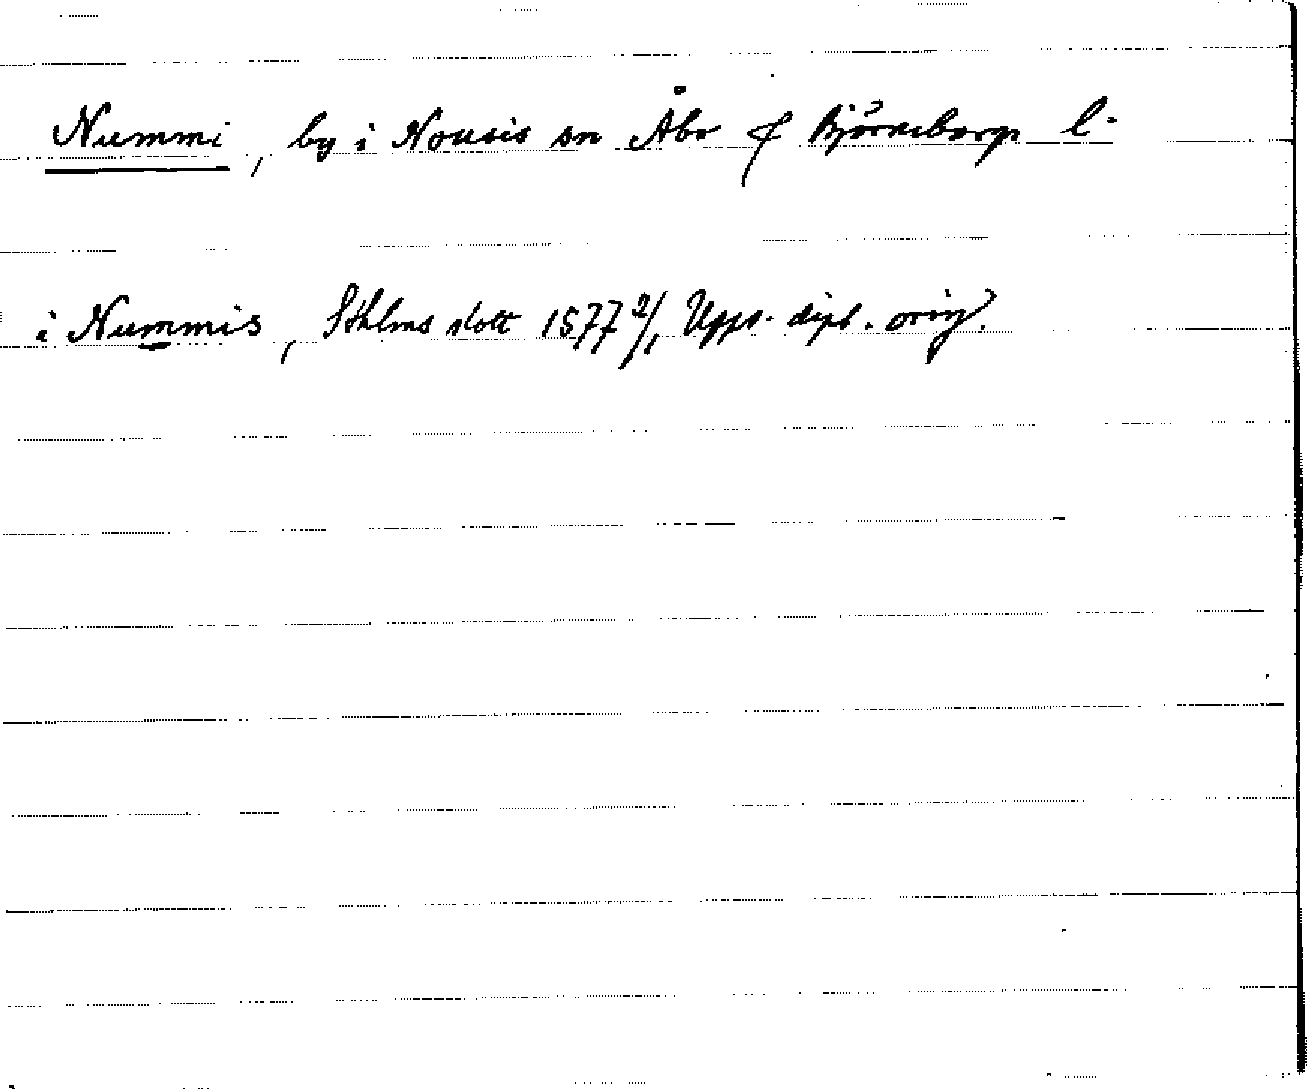 Nummi, by i Nousis sn Åbo o Björneborgs l.
i Nummis, Sthlms slott 1577 2/1 Upps. dipl. orig.